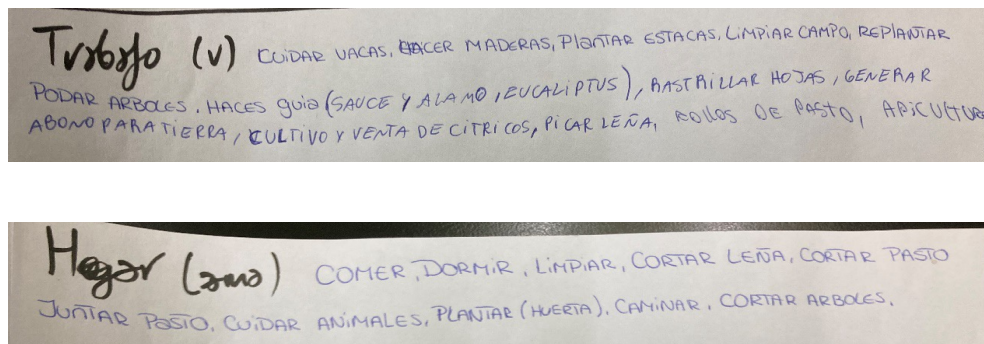 Trabajo (V) CUIDAR VACAS, HACER MADERAS, PlANTAR ESTACAS, LiMPIAR CAMPO, REPLANTAR
PODAR ARBOLES, HACES guia (SAUCE Y ALAMO, EUCALiPTUS), RASTRILLAR HOJAS, GENERAR
ABONO PARA TIERRA, CULTIVO Y VENTA DE CÍTRICOS, PICAR LEÑA, ROLLOS DE PASTO, APICULTURA
Hogar (amo) COMER, DORMIR, LiMPiAR, CORTAR LEÑA, CORTAR PASTO
JUNTAR PASTO, CUIDAR ANIMALES, PLANTAR (HUERTA), CAMINAR, CORTAR ARBOLES.